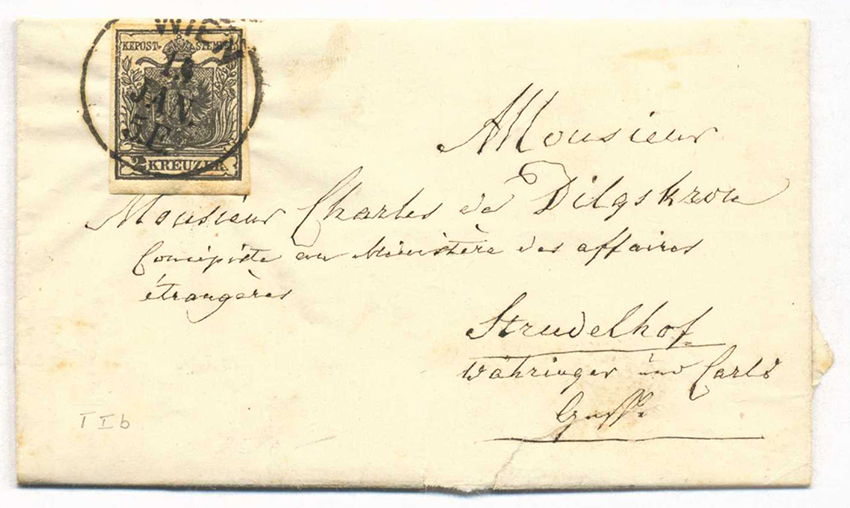 WIEN
KKPOST-STEMPEL
JAN
2 KREUZER
Monsieur
Monsieur Charles de Dilgskron
Concipiste au Ministère des affaires
étrangères
Strudelhof
Währinger und Carls
Gasse
I I b